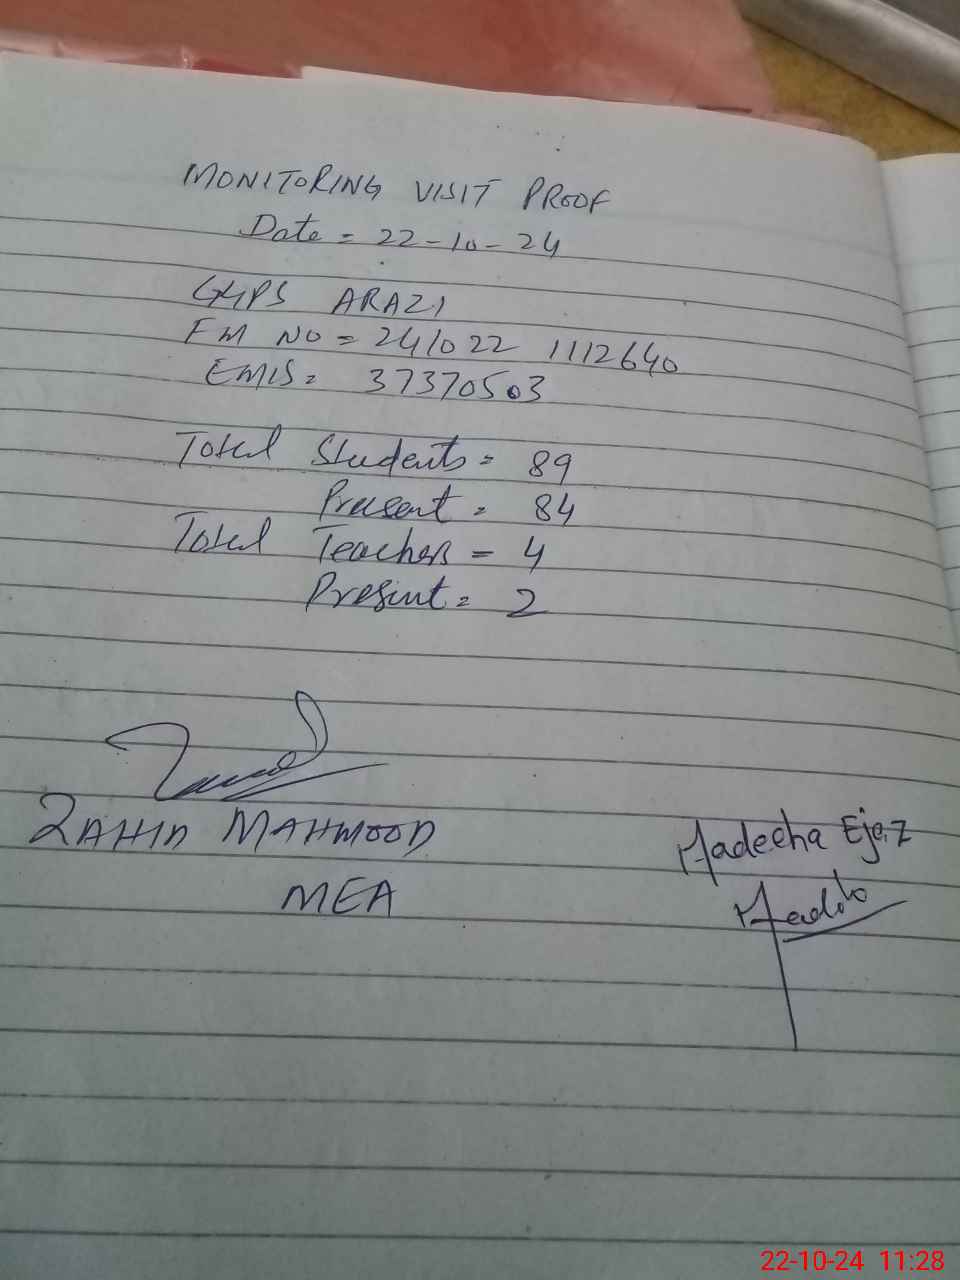 MONITORING VISIT PROOF
Date = 22-10-24
GGPS ARAZI
FM NO = 241022 1112640
EMIS = 37370503
Total Students = 89
Present = 84
Total Teachers = 4
Present = 2
ZAHID MAHMOOD
MEA
Madeeha Ejaz
22-10-24 11:28